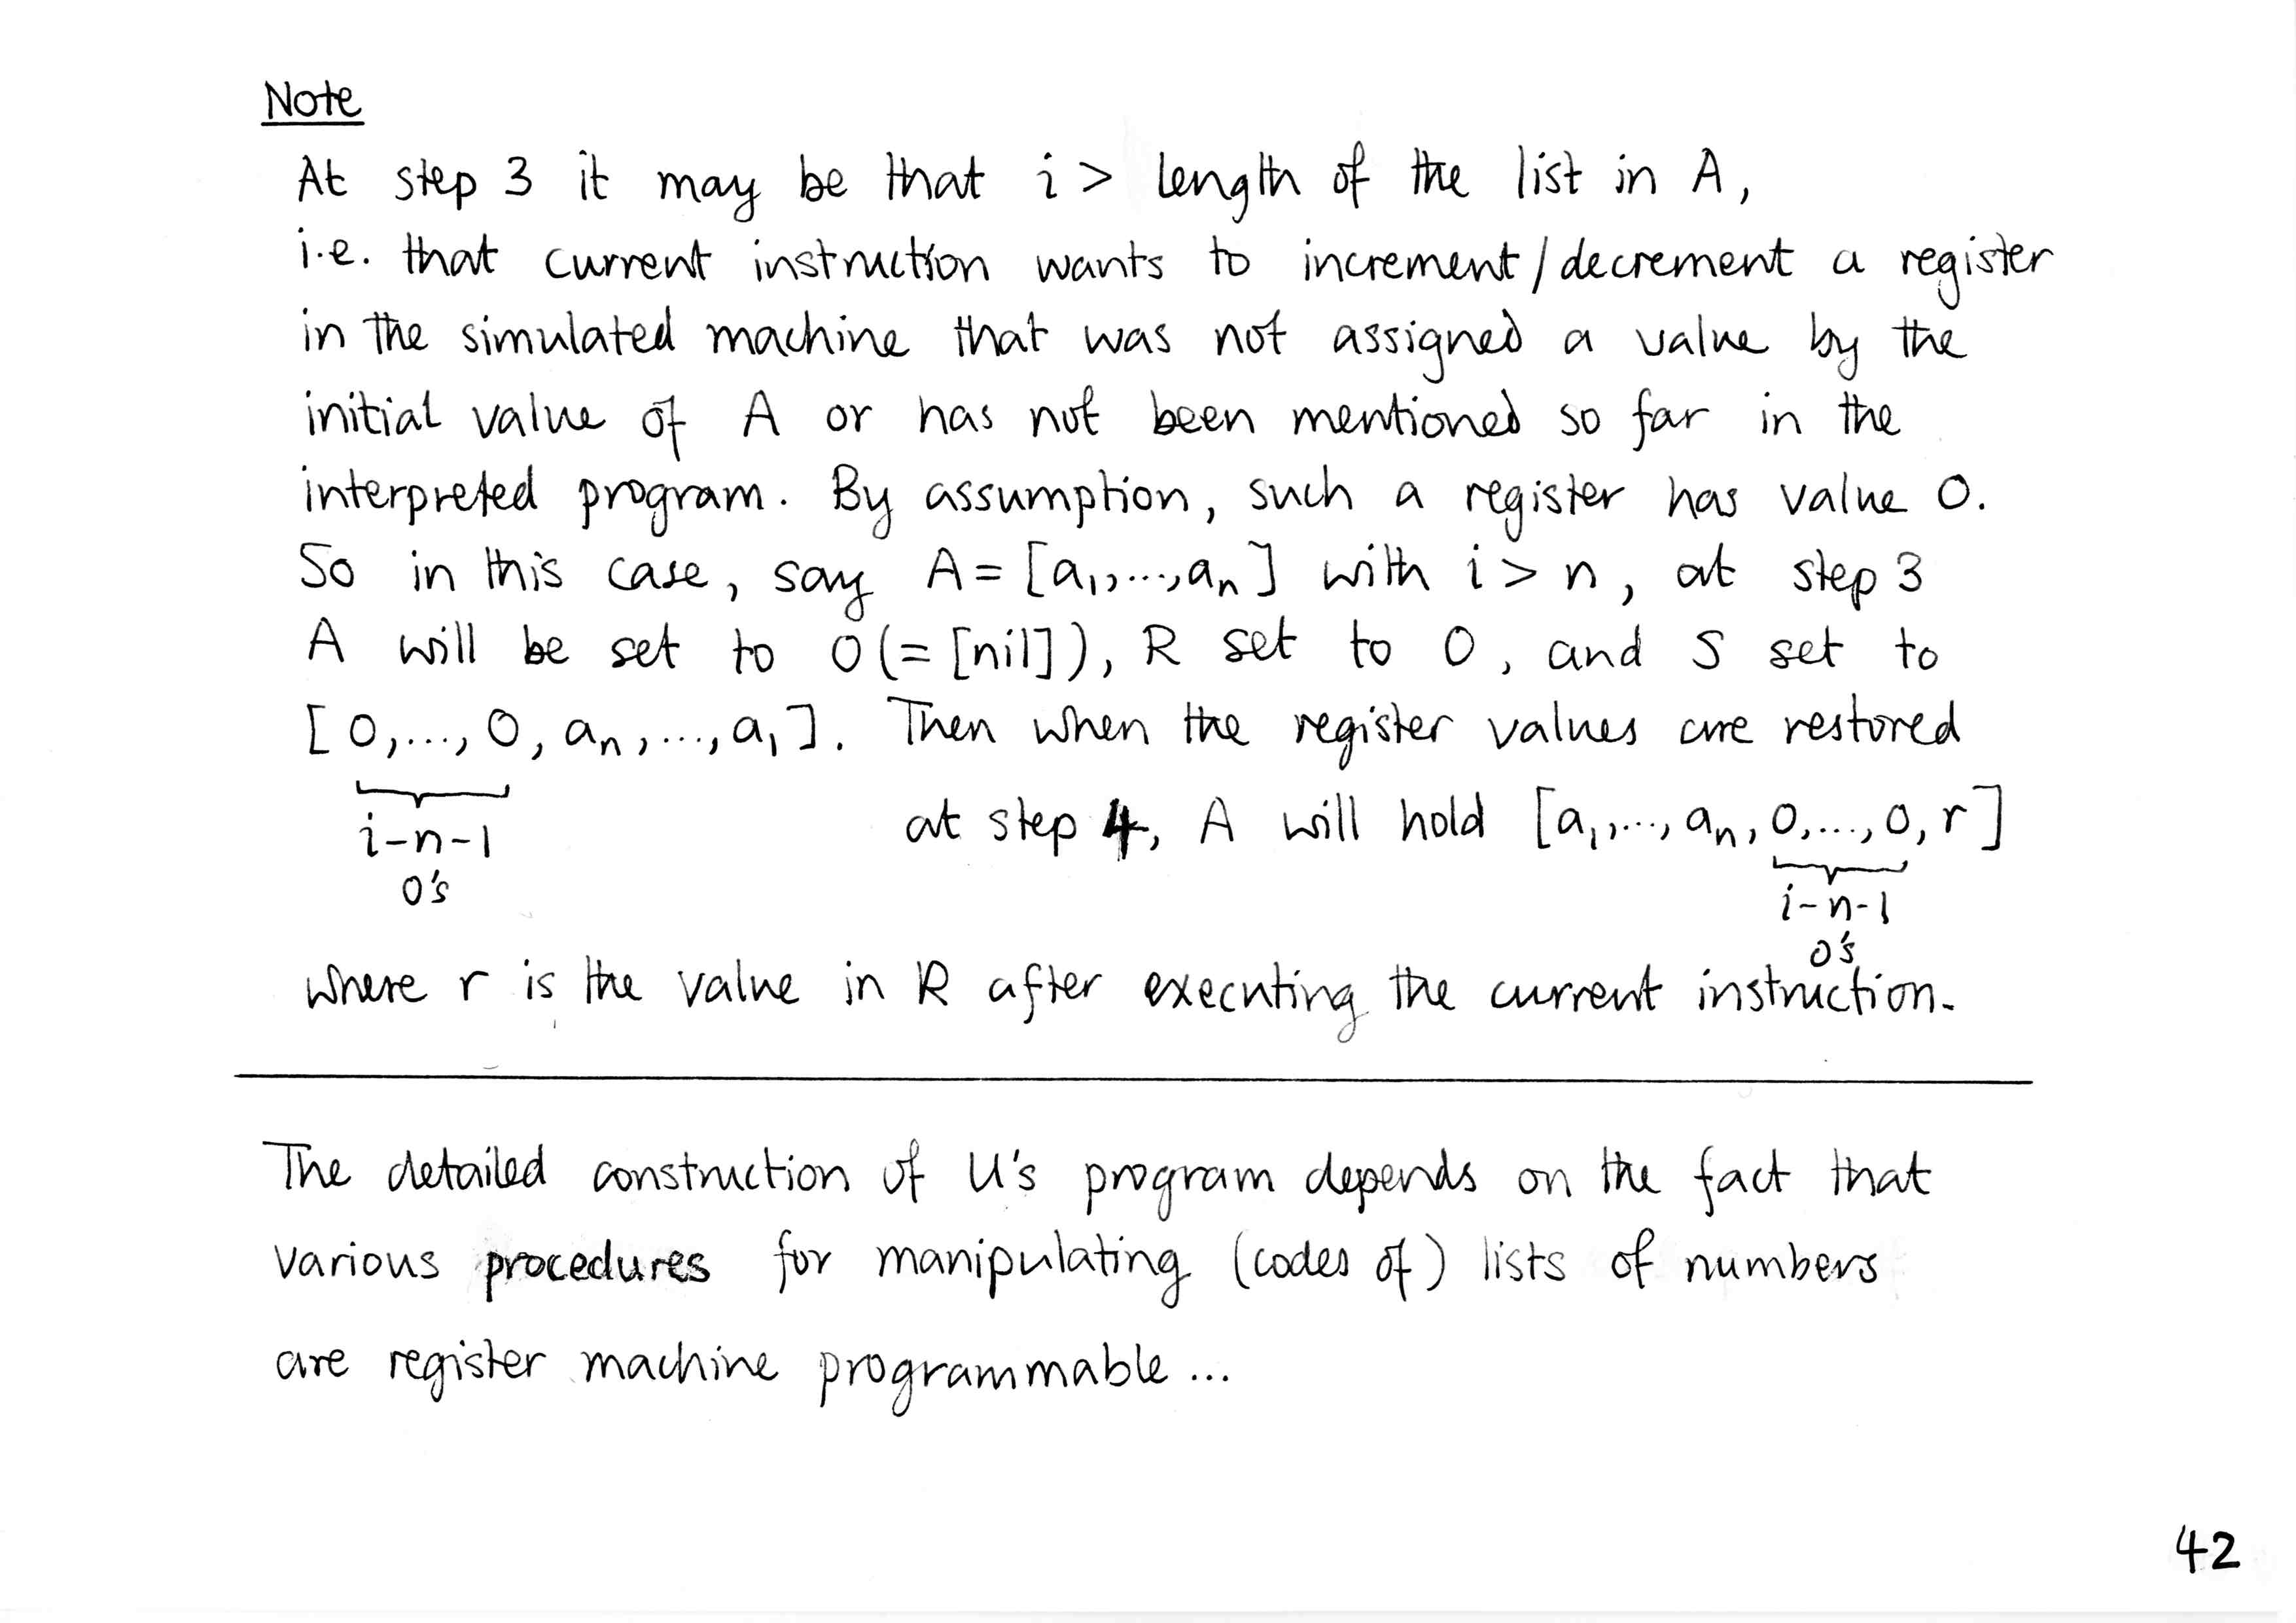 Note
At step 3 it may be that i > length of the list in A,
i.e. that current instruction wants to increment/decrement a register
in the simulated machine that was not assigned a value by the
initial value of A or has not been mentioned so far in the
interpreted program. By assumption, such a register has value 0.
So in this case, say A = [a₁,...,aₙ] with i > n, at step 3
A will be set to 0 (= [nil]), R set to 0, and S set to
[0,...,0, aₙ,...,a₁]. Then when the register values are restored
i-n-1
0's
at step 4, A will hold [a₁,...,aₙ,0,...,0,r]
i-n-1
0's
where r is the value in R after executing the current instruction.
The detailed construction of U's program depends on the fact that
various procedures for manipulating (codes of) lists of numbers
are register machine programmable...
42